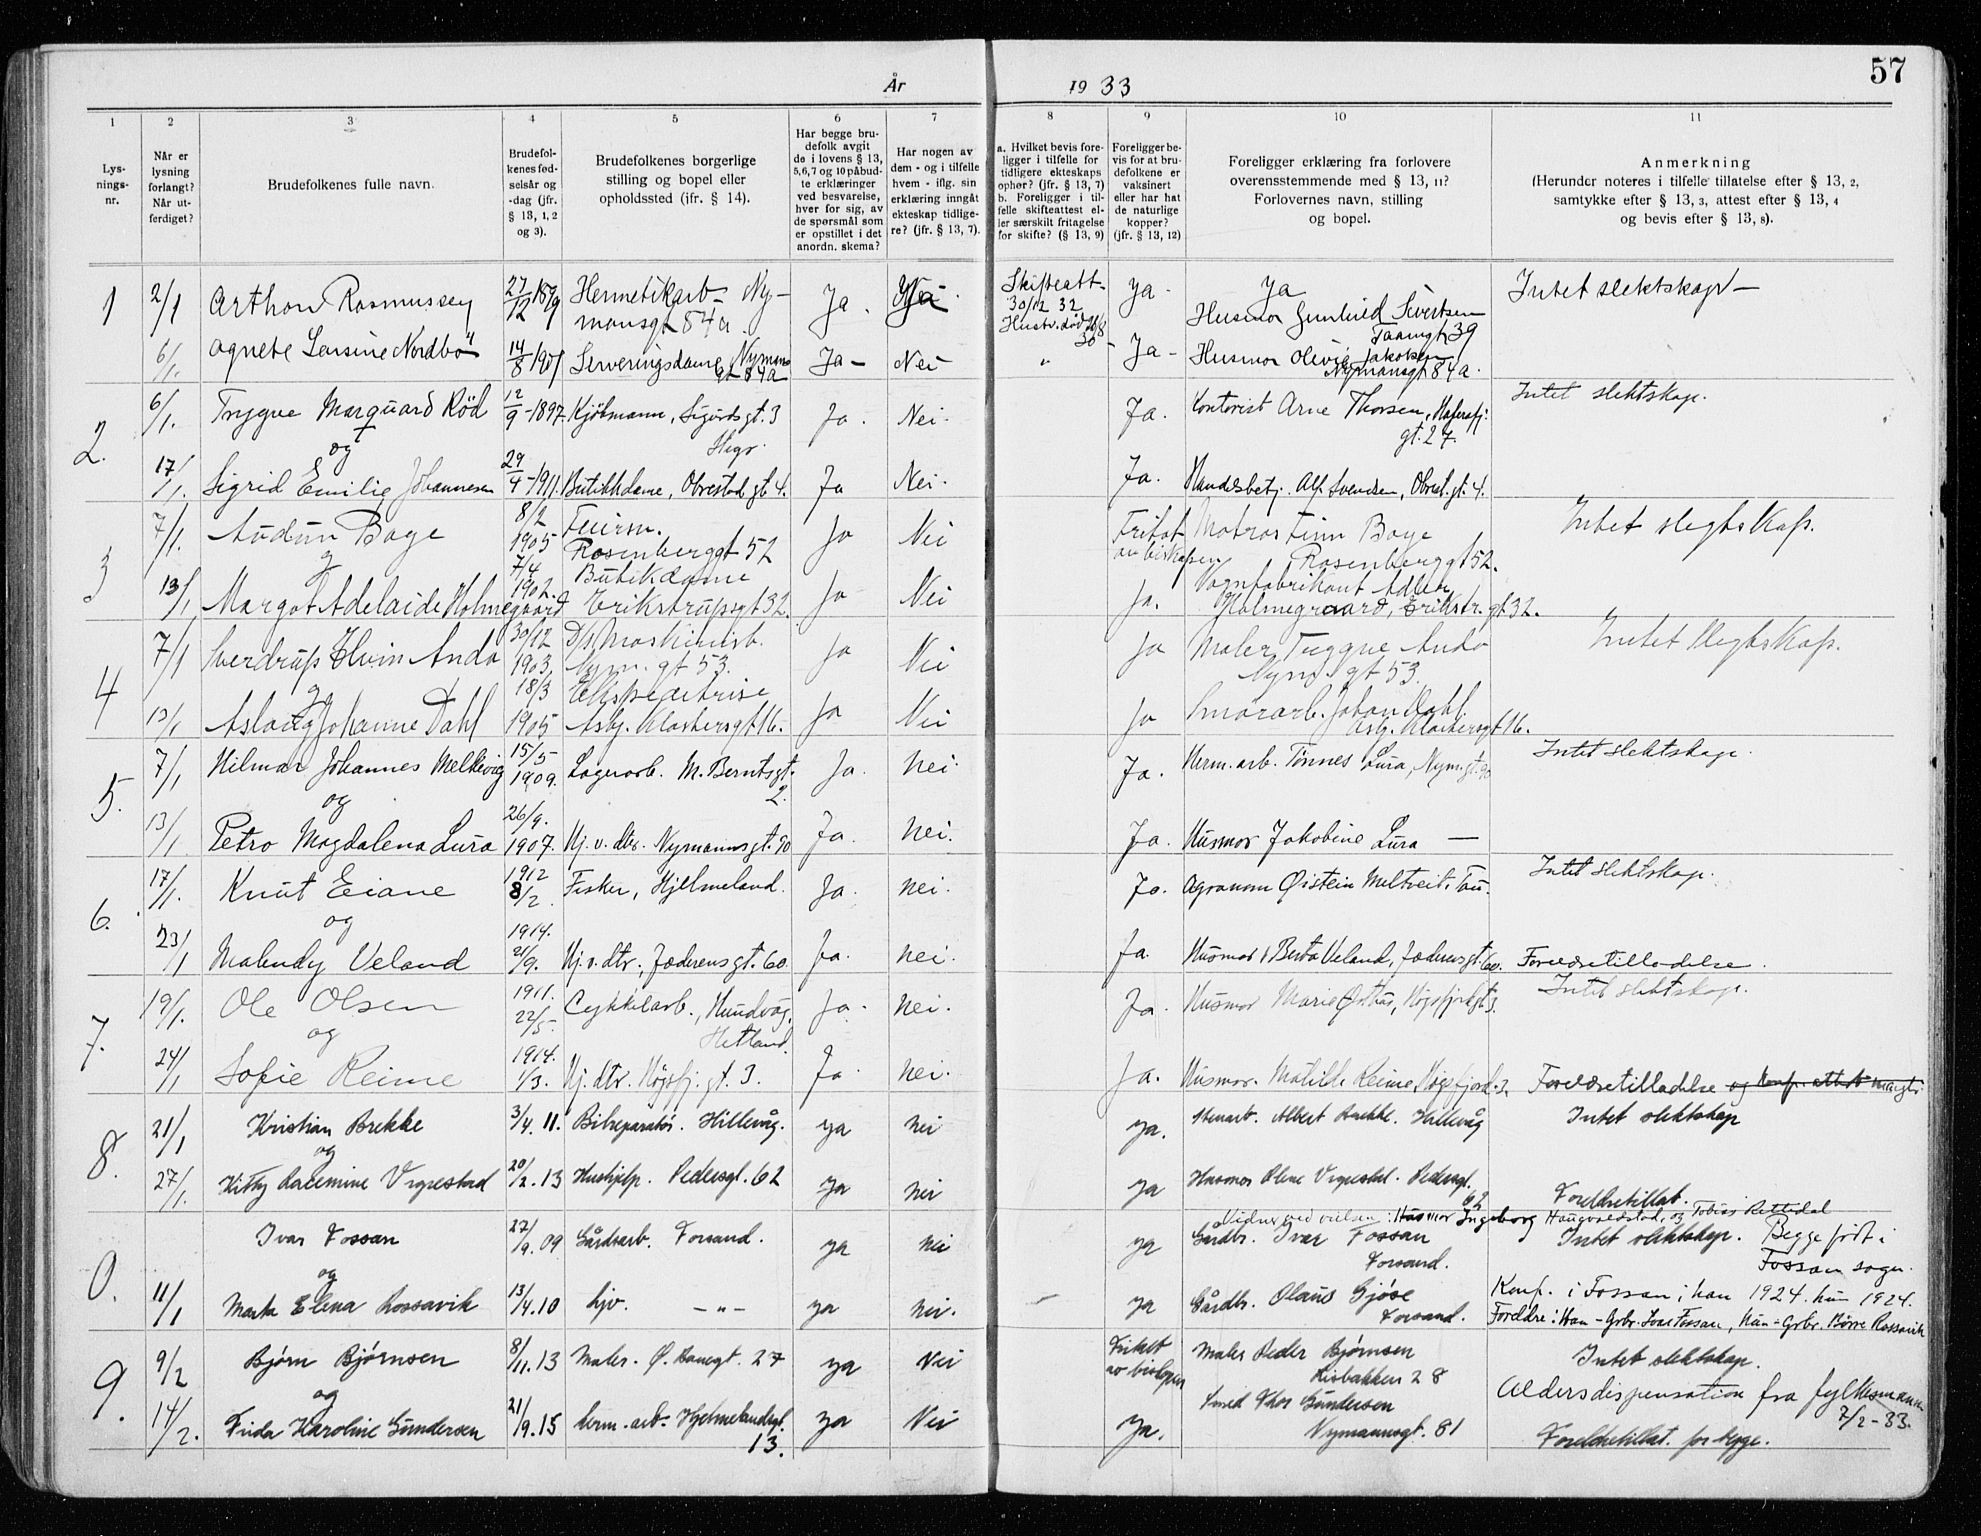 År 1933
57
1 2 3 4 5 6 7 8 9 10 11
Lys-
nings-
nr.
Når er
lysning
forlangt?
Når ut-
ferdiget?
Brudefolkenes fulle navn.
Brudefol-
kenes fød-
selsår og
-dag (jfr.
§ 13, 1, 2
og 3).
Brudefolkenes borgerlige
stilling og bopel eller
opholdssted (jfr. § 14).
Har begge bru-
defolk avgit
de i lovens § 13,
5,6,7 og 10 påbud-
te erklæringer
ved besvarelse,
hver for sig, av
de spørsmål som
er opstillet i det
anordn. skema?
Har nogen av
dem - og i tilfelle
hvem - iflg. sin
erklæring inngått
ekteskap tidlige-
re? (jfr. § 13, 7).
a. Hvilket bevis fore-
ligger i tilfelle for
tidligere ekteskaps
ophør? (jfr. § 13, 7)
b. Foreligger i til-
felle skifteattest el-
ler særskilt fritagelse
for skifte? (§ 13, 9)
Foreligger be-
vis for at bru-
defolkene er
vaksinert
eller har hat
de naturlige
kopper?
(jfr. § 13, 12)
Foreligger erklæring fra forlovere
overensstemmende med § 13, 11?
Forlovernes navn, stilling
og bopel.
Anmerkning
(Herunder noteres i tilfelle tillatelse efter § 13, 2,
samtykke efter § 13, 3, attest efter § 13, 4
og bevis efter § 13, 8).
1 2/1 Arthon Rasmussen 27/12 1879 Hermetikarb. Ny-
mansgt 84a. Ja. Ja. Skifteatt-
30/12 32
Hustr. død 21/8
30 - Ja - Ja
Husmor Gunhild Sivertsen
39 Intet slektskap -
6/1. Agnete Lensine Nordbö 14/8 1901 Serveringsdame, Nymans
gt 84a Ja - Nei " Ja - Husmor Olivie Jakobsen
Nymansgt 84a.
2. 6/1. Trygve Marquard Röd 12/9 - 1897. Kjöbmann, Sigurdsgt. 3 Ja. Nei. Ja. Kontorist Arne Thorsen, Hafrsfj.
gt. 27. Intet slektskap.
og
17/1. Sigrid Emilie Johannesen 29/4 - 1911. Butikkdame, Obrestad gt 4. Ja Nei. Ja. Handelsbetj. Alf Svendsen, Obrest. gt. 4.
3 7/1. Audun Boge 8/2
1905 Feierm.
Rosenberggt 52 Ja Nei Fritat
av biskopen Matros Finn Boge
Rosenberggt 52. Intet slegtskap.
g
13/1 Margot Adelaide Holmegaard 7/4
1902. Butikdame
Erikstrupsgt 32. Ja Nei Ja. Vognfabrikant Adler
Holmegraard, Erikstr. gt 32.
4 7/1 Sverdrup Elvin Anda 30/12
1903. D/s Maskinist.
Nym. gt 53. Ja Nei Ja Maler Tryggve Anda
Nym. gt 53. Intet Slegtskap.
g
13/1 Aslaug Johanne Dahl 18/3
1905 Ekspeditrise
Asbj. Klostersgt 16. Ja Nei Ja Murarb. Johan Dahl
Asbj. Klostersgt 16.
5. 7/1 Hilmar Johannes Melkevig 15/5
1909. Lagerarb. M. Berntsgt.
2. Ja. Nei. Ja. Herm. arb. Tönnes Lura, Nym. gt. 90 Intet slektskap.
og
13/1 Petra Magdalena Lura 26/9.
1907. Hj. v. dtr. Nymannsgt. 90 Ja. Nei. Ja. Husmor Jakobine Lura —
6. 17/1. Knut Eiane 1912
8/2 Fisker, Hjelmeland. Ja. Nei. Ja. Agronom Øistein Meltveit, Tau. Intet slektskap.
og
23/1 Malendy Veland 1914.
21/9. Hj. v. dtr., Jæderensgt. 60 Ja. Nei. Ja. Husmor Berta Veland, Jæderensgt. 60. Foreldretilladelse.
7. 19/1. Ole Olsen 1911.
22/5. Cykkelarb., Hundvåg,
Hetland. Ja. Nei. Ja. Husmor Marie Østhus, Høgsfjordgt 3. Intet slektskap.
og
24/1 Sofie Reime 1914.
1/3. Hj. dtr. Høgsfj. gt. 3. Ja. Nei. Ja. Husmor. Matilde Reime, Høgsfjord. 3. Foreldretilladelse og konf. attest mangler
8. 21/1 Kristian Brekke 3/4. 11. Bilreparatör. Hillevåg. Ja Nei Ja. Stenarb. Albert Brekke. Hillevåg Intet slektskap
og
27/1. Kitty Vigrestad 20/2. 13 Hushjelp. Pedersgt. 62 Ja Nei Ja Husmor Olene Vigrestad. Pedersgt.
62 Foreldretillat.
Vidner ved vielsen: Husmor Ingeborg Haugvaldstad, og Tobias Rettedal
0. Ivar Fossan 27/9. 09 Gårdsarb. Forsand. Ja Nei Ja Gårdbr. Ivar Fossan
Forsand. Intet slektskap. Begge født i
Fossan sogn.
og
11/1 Marta Elena Rossavik 13/4. 10 hjv. —"— Ja Nei. Ja Gårdbr. Olaus Gjøse
Forsand. Konf. i Fossan; han 1924. hun 1924.
Foreldre: Han - Grbr. Ivar Fossan, Hun - Grbr. Børre Rossavik
9. 9/2 Bjørn Bjørnsen 8/11. 13 Maler. Ø. Banegt. 27 Ja Nei Fritat
av biskopen Maler Peder Bjørnsen
Risbakken 28 Intet slektskap.
Aldersdispensation fra fylkesmannen
7/2 - 33.
og
14/2. Frida Karoline Gundersen 21/9. 15 herm. arb. Hjelmelandsgt.
13. Ja Nei Ja. Smed Thor Gundersen
Nymannsgt. 81 Foreldretillat. for begge.